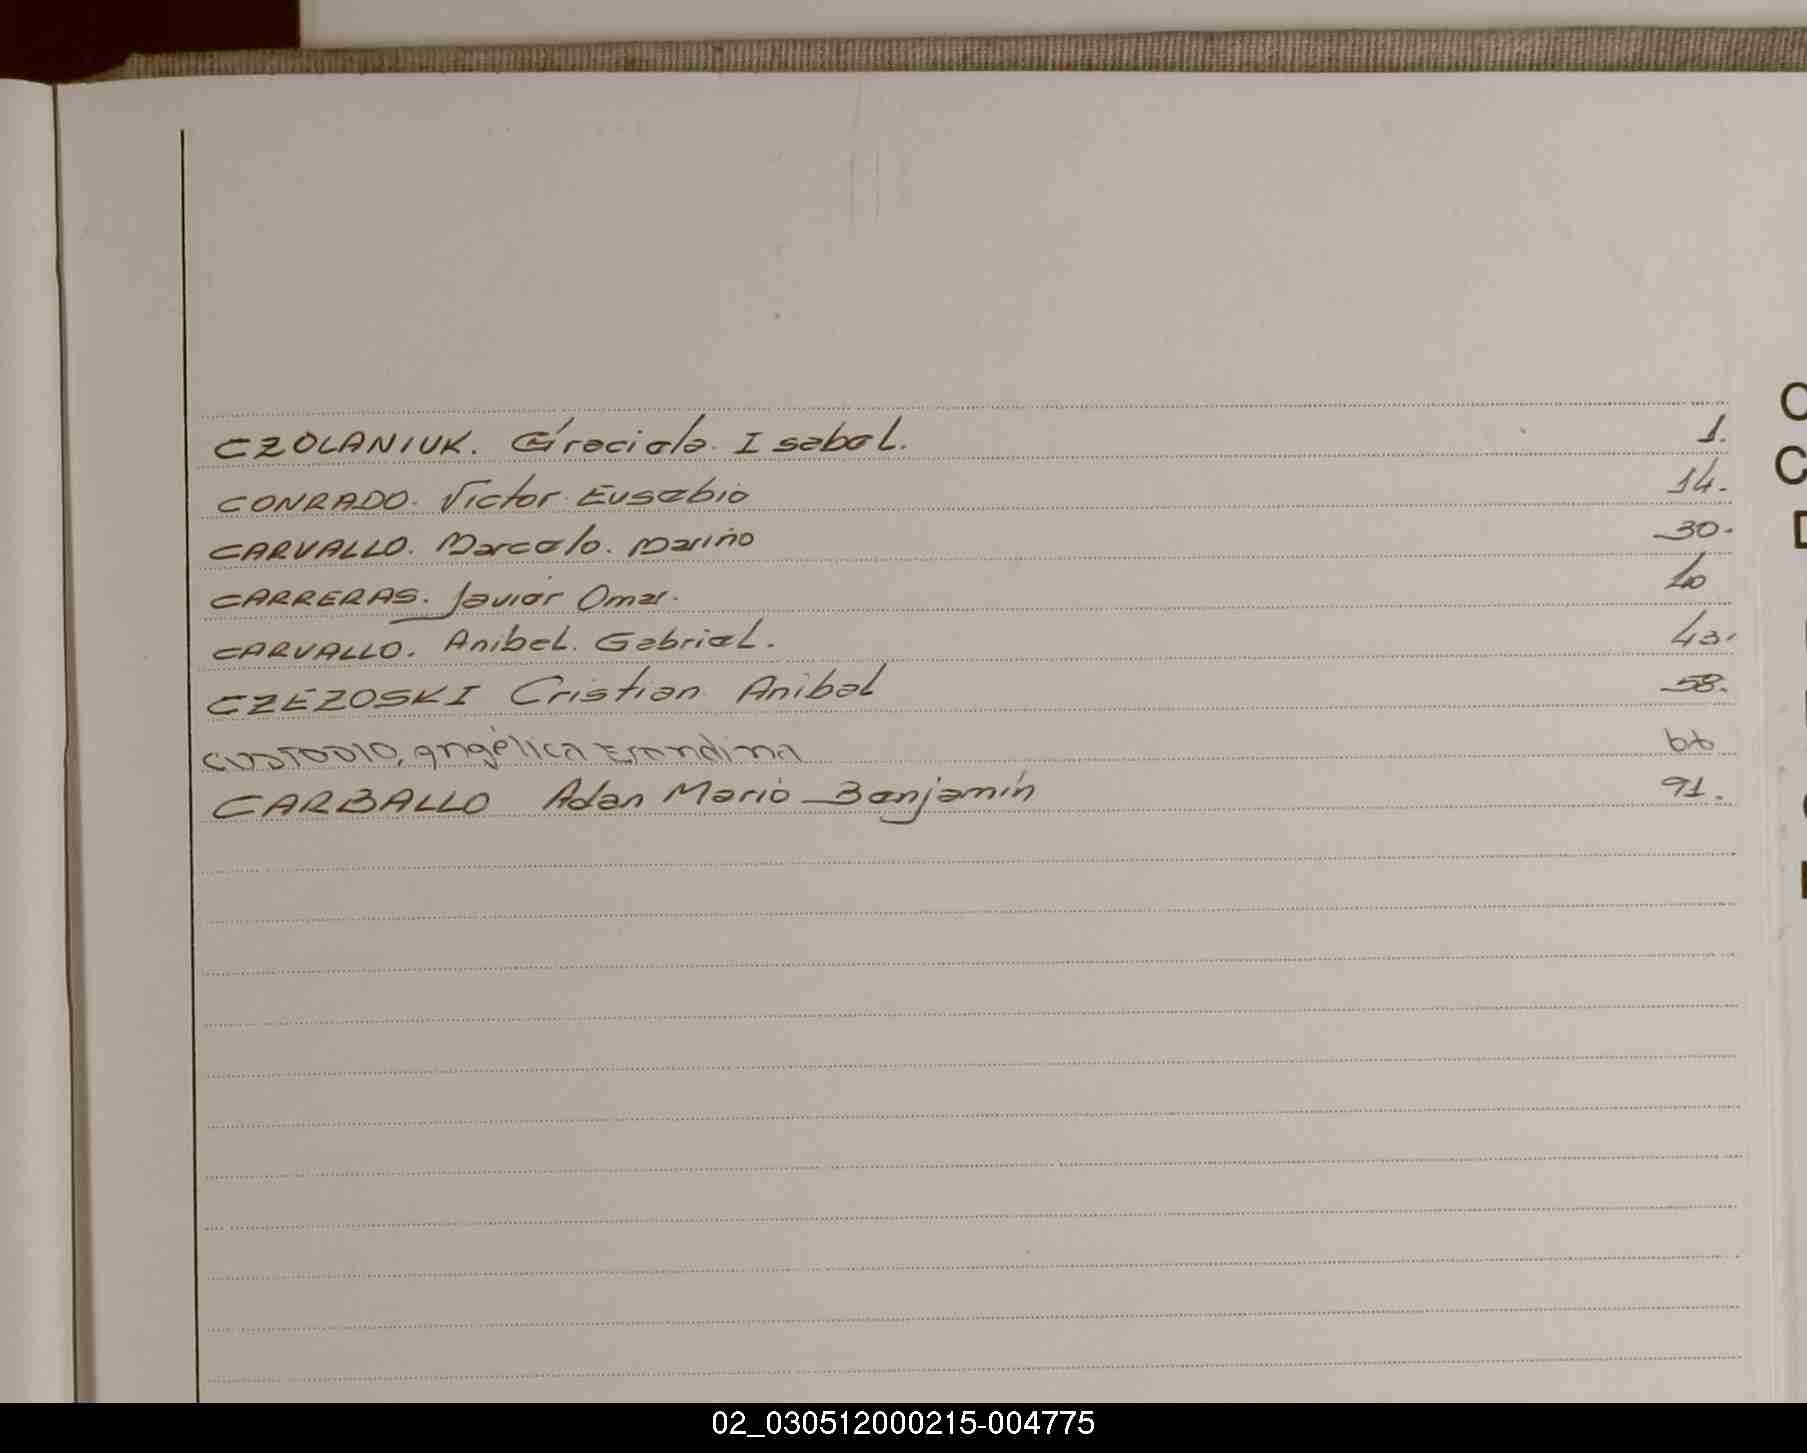 CZOLANIUK. Graciela. Isabel. 1.
CONRADO. Victor. Eusebio 14.
CARVALLO. Marcelo. Mariño 30.
CARRERAS. Javier Omar. 40
CARVALLO. Anibel. Gabriel. 43.
CZEZOSKI Cristian Anibal 58.
CUSTODIO, Angélica Erondina 66
CARBALLO Adan Mario Benjamín 91.
C
C
D
02_030512000215-004775